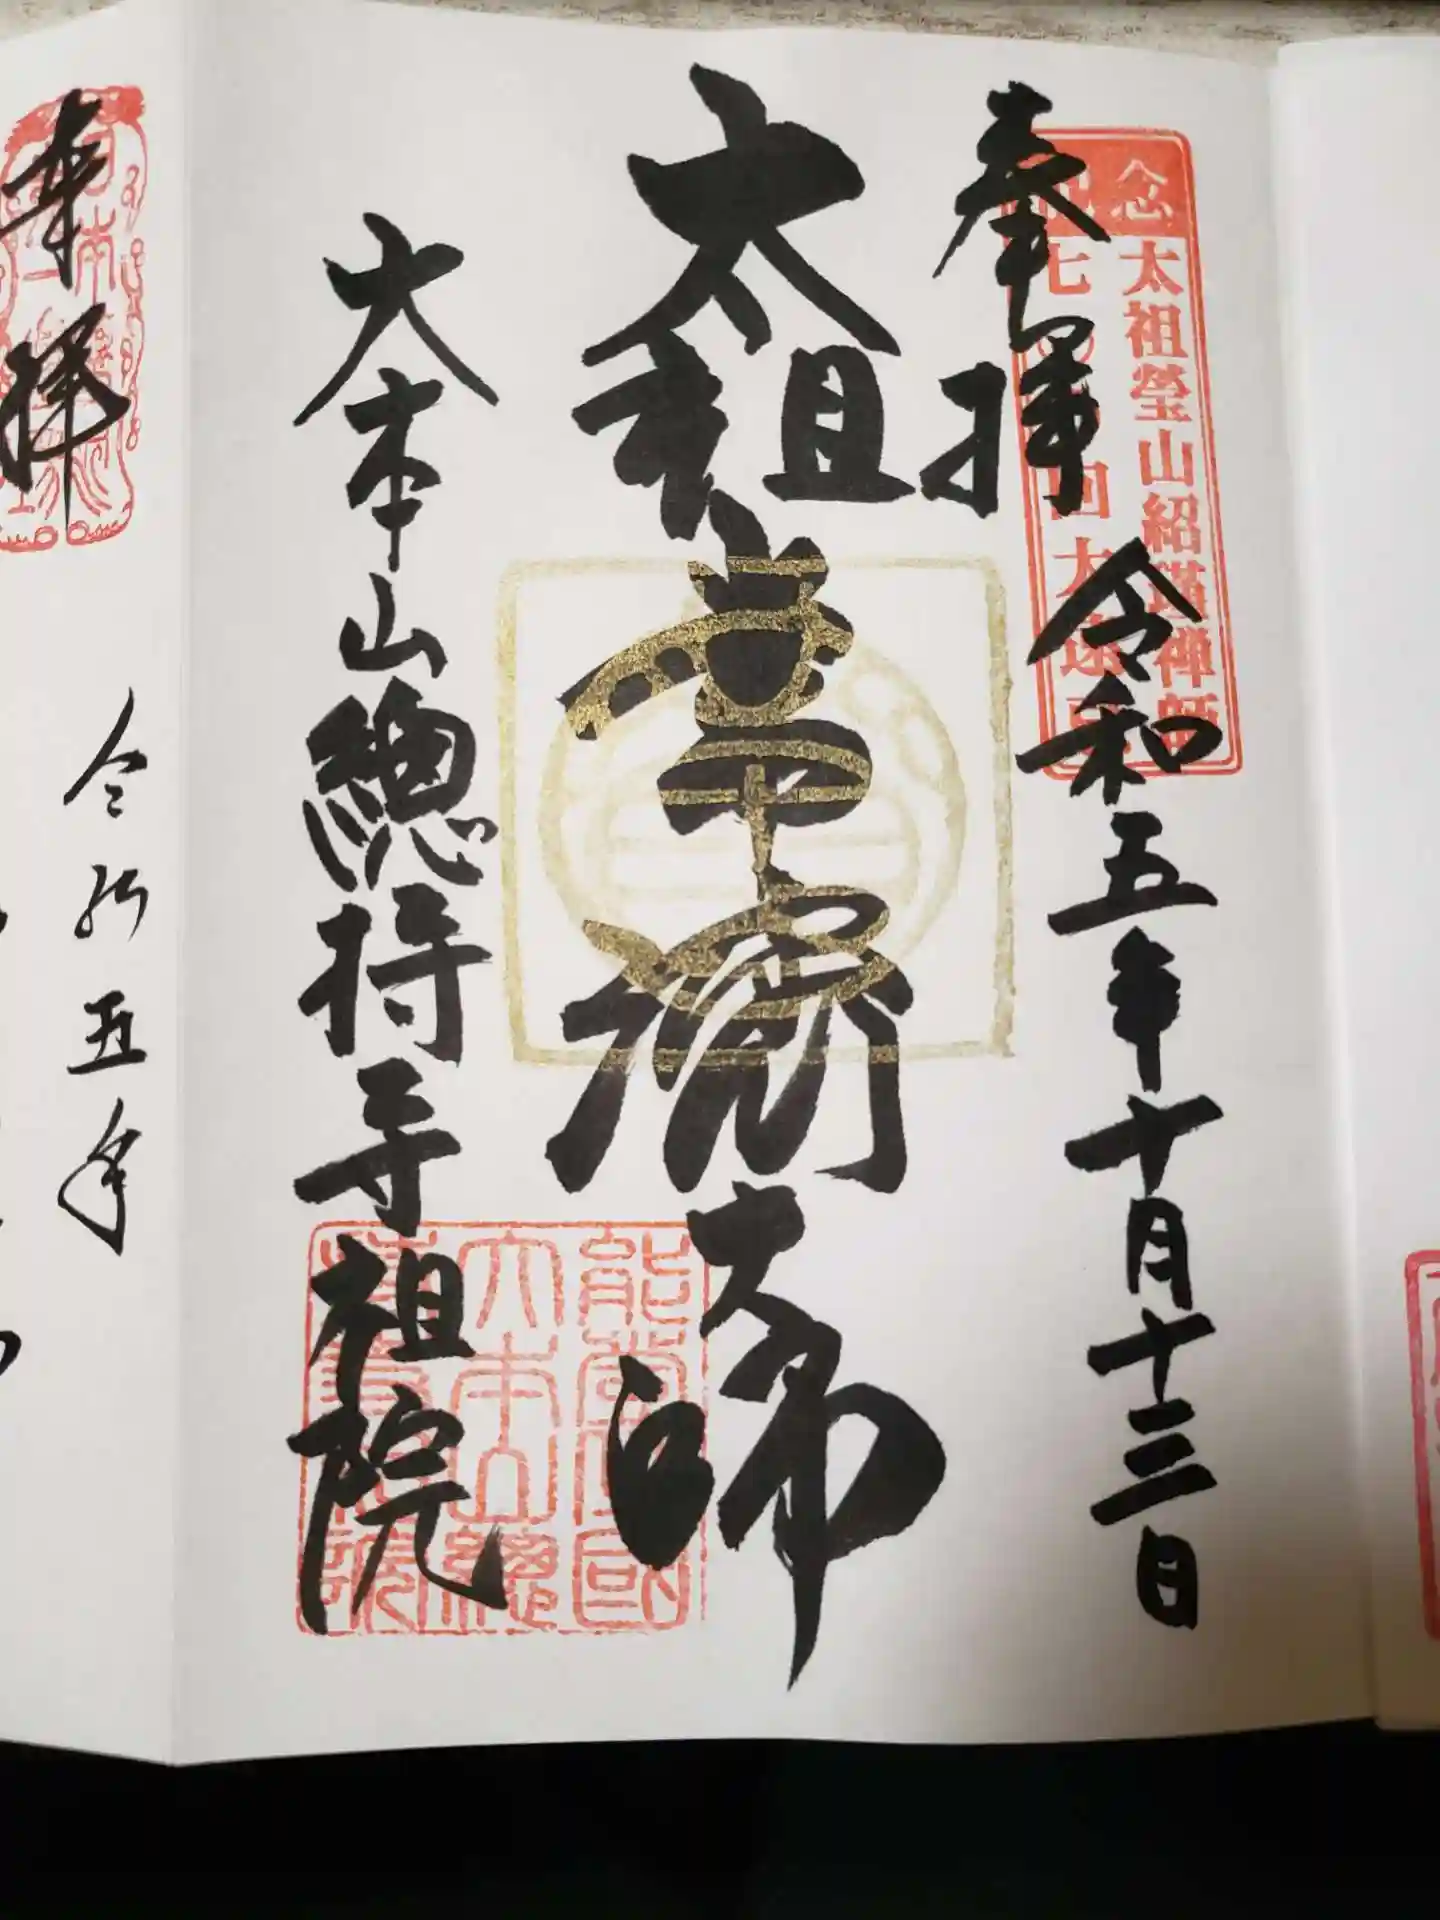 奉拝
令和五年十月十三日
念
太祖瑩山紹瑾禅師
七
回大遠忌
太祖常済大師
大本山總持寺祖院
能登國
大本山總
持寺祖院
奉拝
令和五年